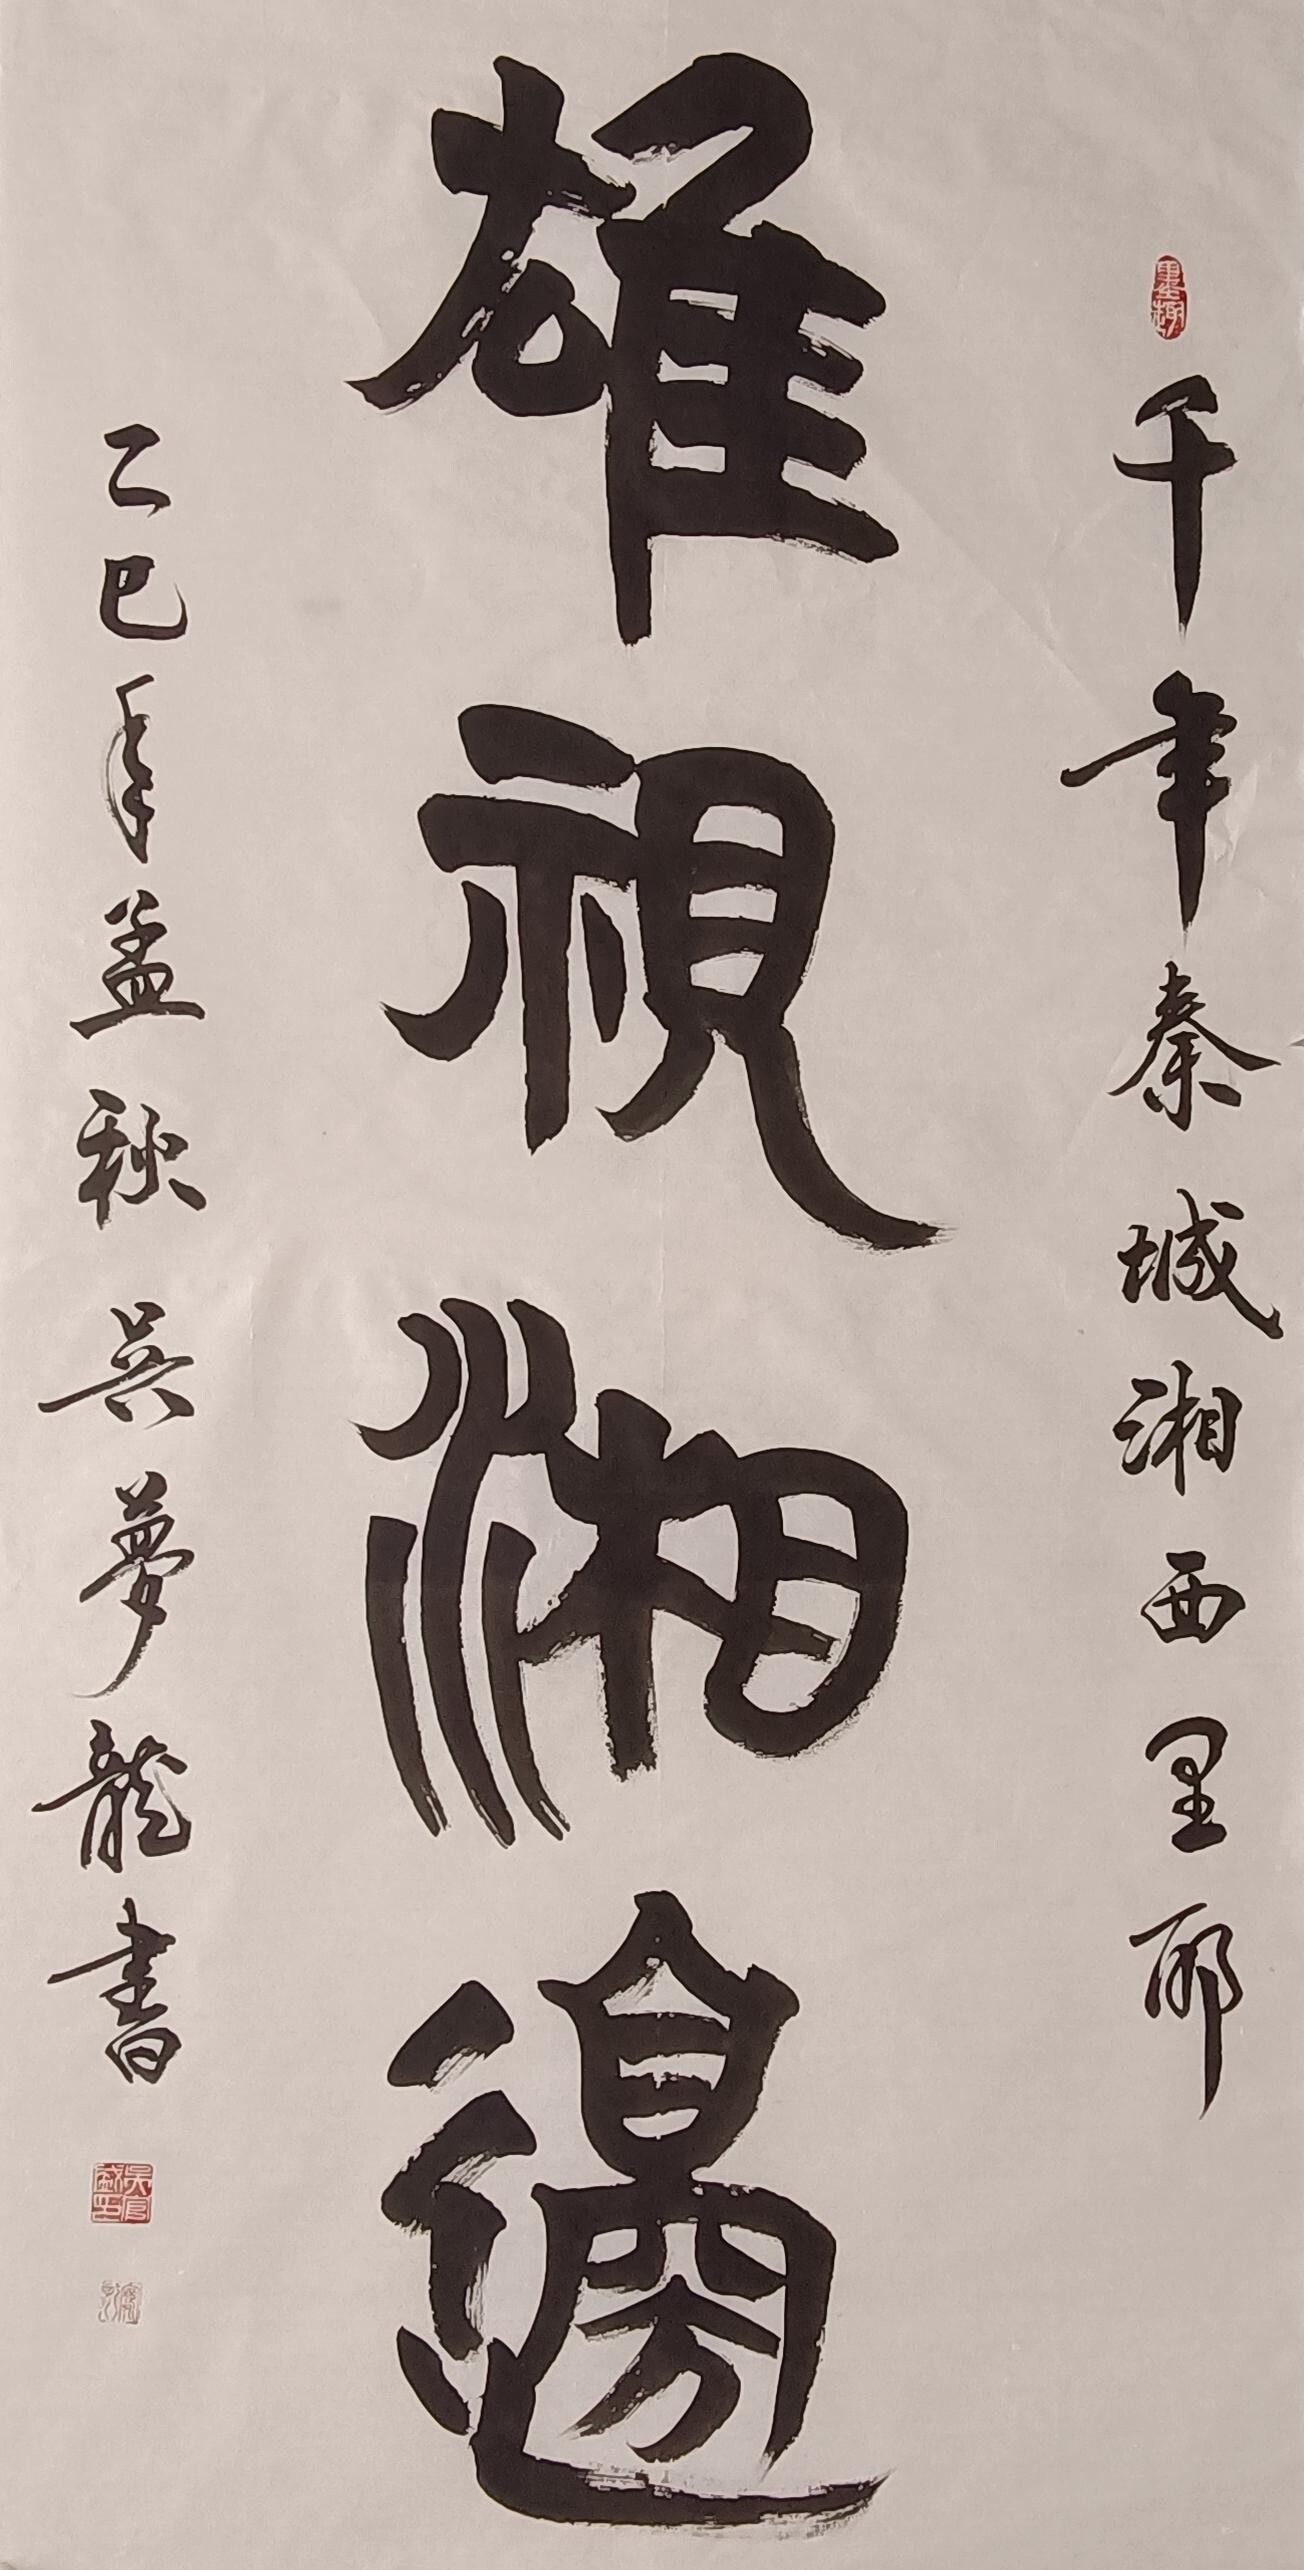 千年秦城湘西里耶
雄視湘邊
乙巳年孟秋吳夢龍書
墨趣